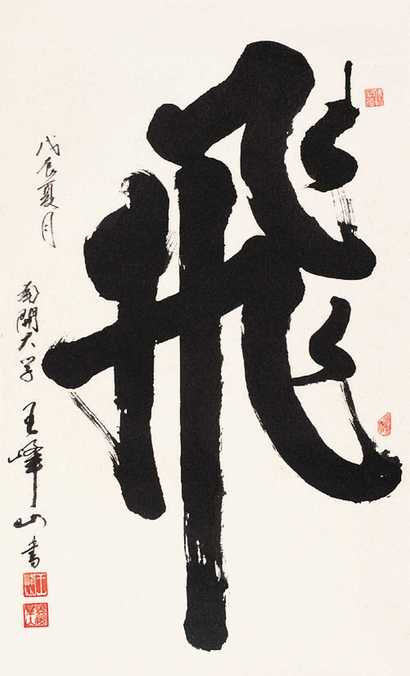 飛
戊辰夏月
南開大学王峰山書